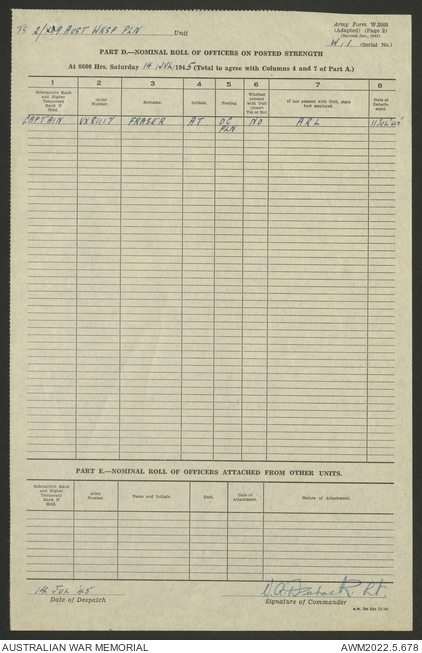 Army Form W.3008
(Adapted) (Page 2)
2/ AUST WKSP PLN Unit
W. 1 (Serial No.)
PART D.—NOMINAL ROLL OF OFFICERS ON POSTED STRENGTH
At 0600 Hrs. Saturday 14 JUL 1945 (Total to agree with Columns 4 and 7 of Part A.)
1 2 3 4 5 6 7 8
Substantive Rank and Higher Temporary Rank if Held. Army Number. Surname. Initials. Posting. Whether present with Unit (Insert Yes or No) If not present with Unit, state how employed. Date of Detachment.
CAPTAIN VX81117 FRASER AT OC PLN NO ARL 11 JUL 45
PART E.—NOMINAL ROLL OF OFFICERS ATTACHED FROM OTHER UNITS.
Substantive Rank and Higher Temporary Rank if Held. Army Number. Name and Initials. Unit. Date of Attachment. Nature of Attachment.
14 JUL 45
Date of Despatch
Signature of Commander
AUSTRALIAN WAR MEMORIAL
AWM2022.5.678